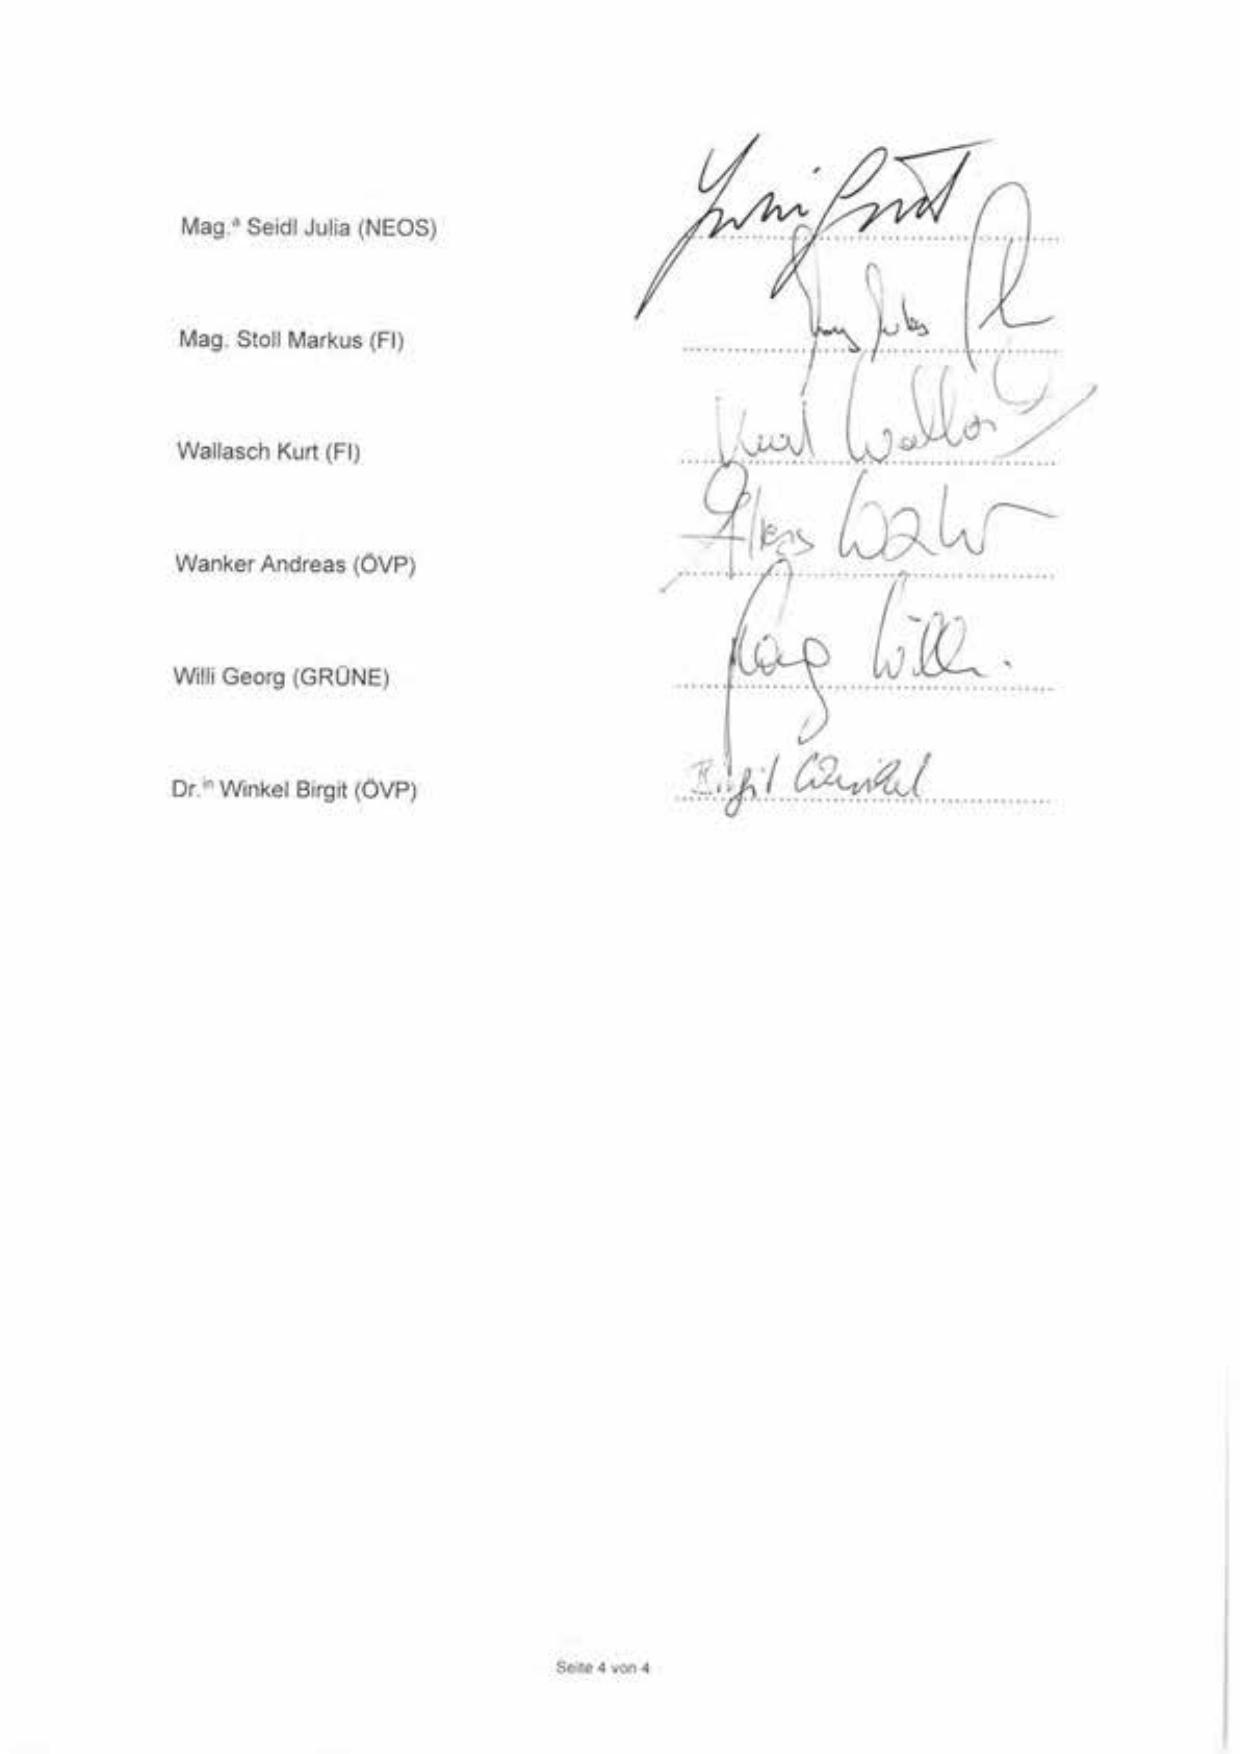 Mag.ª Seidl Julia (NEOS)
Mag. Stoll Markus (FI)
Wallasch Kurt (FI)
Wanker Andreas (ÖVP)
Willi Georg (GRÜNE)
Dr.in Winkel Birgit (ÖVP) Birgit Winkel
Seite 4 von 4